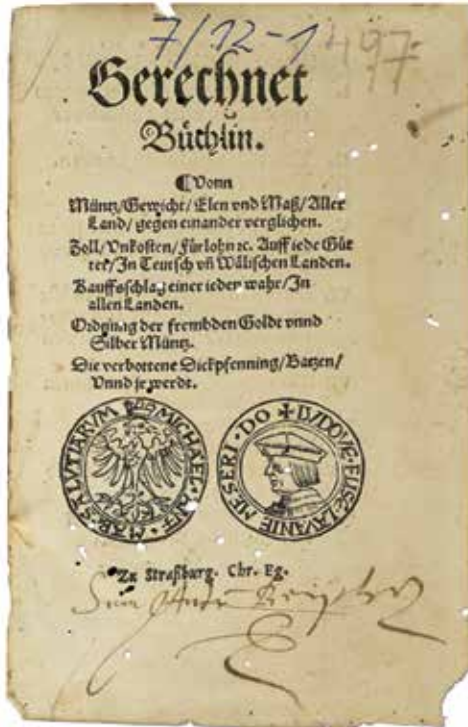 7/12-1 497
Gerechnet
Büchlin.
¶ Vonn
Müntz/Gewicht/Elen vnd Maß/Aller
Land/gegen einander verglichen.
Zoll/Vnkosten/Fürlohn ꝛc. Auff iede Güt
ter/In Teutsch vñ Wälischen Landen.
Kauffsschlag einer ieden wahr/In
allen Landen.
Ordnung der frembden Goldt vnnd
Silber Müntz.
Die verbottene Dickpfenning/Batzen/
Vnnd jr werdt.
MICHAEL · ANT · MAR · SALUTIARVM
DO ✠ LVDOVE · FLISC · LAVANIE · MESERI ·
Zu Straßburg. Chr. Eg.